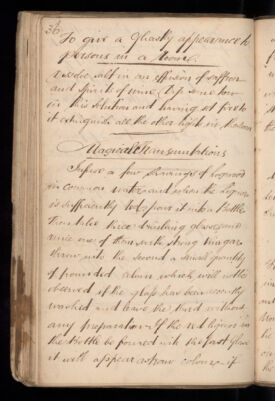 36
To give a Ghastly appearance to
persons in a Room.
Dissolve salt in an effusion of saffron
and Spirits of wine, Dip some tow
in this solution and having set fire to
it extinguish all the other lights in the Room
Magical Transmutations
Infuse a few shavings of Logwood
in common water and when the liquor
is sufficiently red pour it into a Bottle
Then take three drinking glasses and
rince one of them with strong vinegar
throw into the second a small quantity
of pounded alum which will not be
observed if the glass has been recently
washed and leave the third without
any preparation. If the red liquor in
the Bottle be poured into the first Glass
it will appear a straw colour if